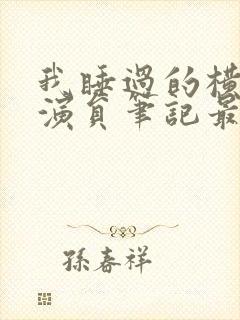 我睡過的橫
演員筆記最
孫春祥